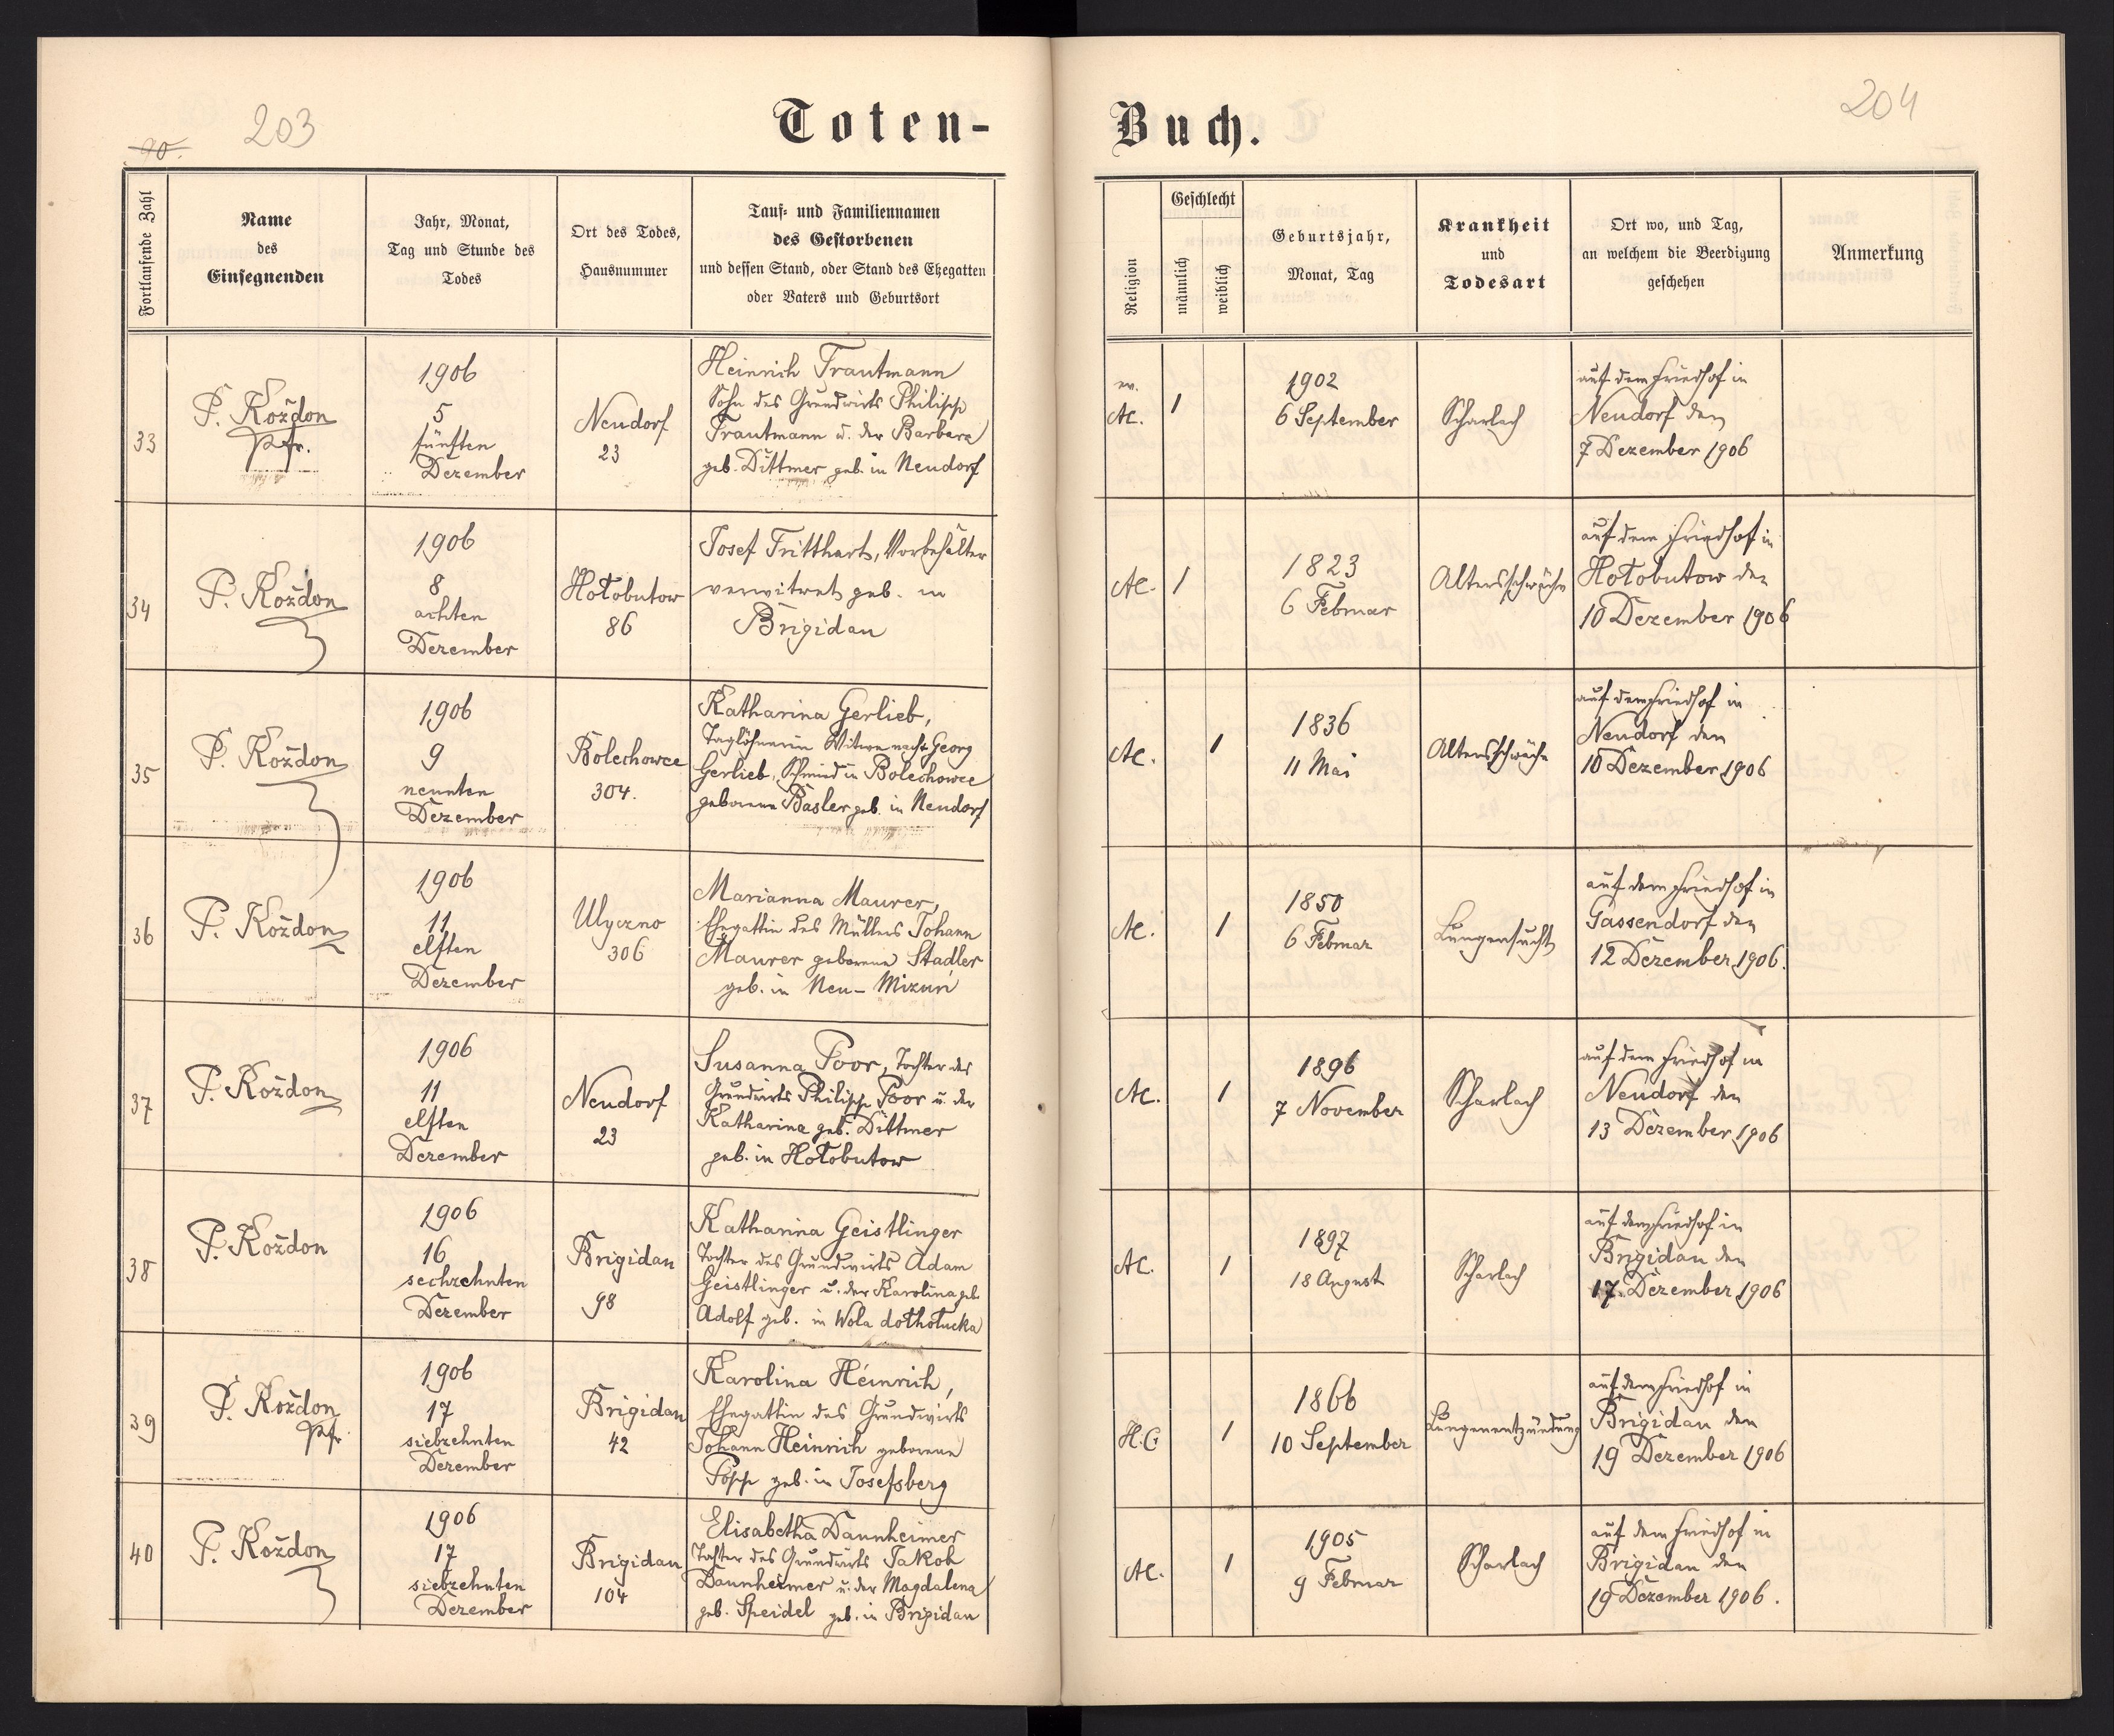 203
90.
Toten-
Fortlaufende Zahl
Name
des
Einsegnenden
Jahr, Monat,
Tag und Stunde des
Todes
Ort des Todes,
Hausnummer
Tauf- und Familiennamen
des Gestorbenen
und dessen Stand, oder Stand des Ehegatten
oder Vaters und Geburtsort
33
P. Koždon
Pfr.
1906
5
fünften
Dezember
Neudorf
23
Heinrich Trautmann
Sohn des Grundwirts Philipp
Trautmann u. der Barbara
geb. Dittmer geb. in Neudorf
34
P. Koždon
1906
8
achten
Dezember
Hołobutow
86
Josef Tritthart, Vorbehälter
verwitwet geb. in
Brigidau
35
P. Koždon
1906
9
neunten
Dezember
Bolechowce
304.
Katharina Gerlieb,
Taglöhnerin Witwe nach Georg
Gerlieb, Schmied in Bolechowce
geborene Basler geb. in Neudorf
36
P. Koždon
1906
11
elften
Dezember
Ulyczno
306
Marianna Maurer,
Ehegattin des Müllers Johann
Maurer geborene Stadler
geb. in Neu-Mizuń
37
P. Koždon
1906
11
elften
Dezember
Neudorf
23
Susanna Poor, Tochter des
Grundwirts Philipp Poor u. der
Katharina geb. Dittmer
geb. in Hołobutow
38
P. Koždon
1906
16
sechzehnten
Dezember
Brigidau
98
Katharina Geistlinger
Tochter des Grundwirts Adam
Geistlinger u. der Karolina geb.
Adolf geb. in Wola dołhołucka
39
P. Koždon
Pfr
1906
17
siebzehnten
Dezember
Brigidau
42
Karolina Heinrich,
Ehegattin des Grundwirts
Johann Heinrich geborene
Popp geb. in Josefsberg
40
P. Koždon
1906
17
siebzehnten
Dezember
Brigidau
104
Elisabetha Dannheimer
Tochter des Grundwirts Jakob
Dannheimer u. der Magdalena
geb. Speidel geb. in Brigidau
204
Buch.
Religion
Geschlecht
männlich
weiblich
Geburtsjahr,
Monat, Tag
Krankheit
und
Todesart
Ort wo, und Tag,
an welchem die Beerdigung
geschehen
Anmerkung
ev.
AC.
1
1902
6 September
Scharlach
auf dem Friedhof in
Neudorf den
7 Dezember 1906
AC.
1
1823
6 Februar
Altersschwäche
auf dem Friedhof in
Hołobutow den
10 Dezember 1906
AC.
1
1836
11 Mai
Altersschwäche
auf dem Friedhof in
Neudorf den
10 Dezember 1906
AC.
1
1850
6 Februar
Lungensucht
auf dem Friedhof in
Gassendorf den
12 Dezember 1906.
AC.
1
1896
7 November
Scharlach
auf dem Friedhof in
Neudorf den
13 Dezember 1906
AC.
1
1897
18 August
Scharlach
auf dem Friedhof in
Brigidau den
17. Dezember 1906
H.C.
1
1866
10 September
Lungenentzündung
auf dem Friedhof in
Brigidau den
19 Dezember 1906
AC.
1
1905
9 Februar
Scharlach
auf dem Friedhof in
Brigidau den
19 Dezember 1906.